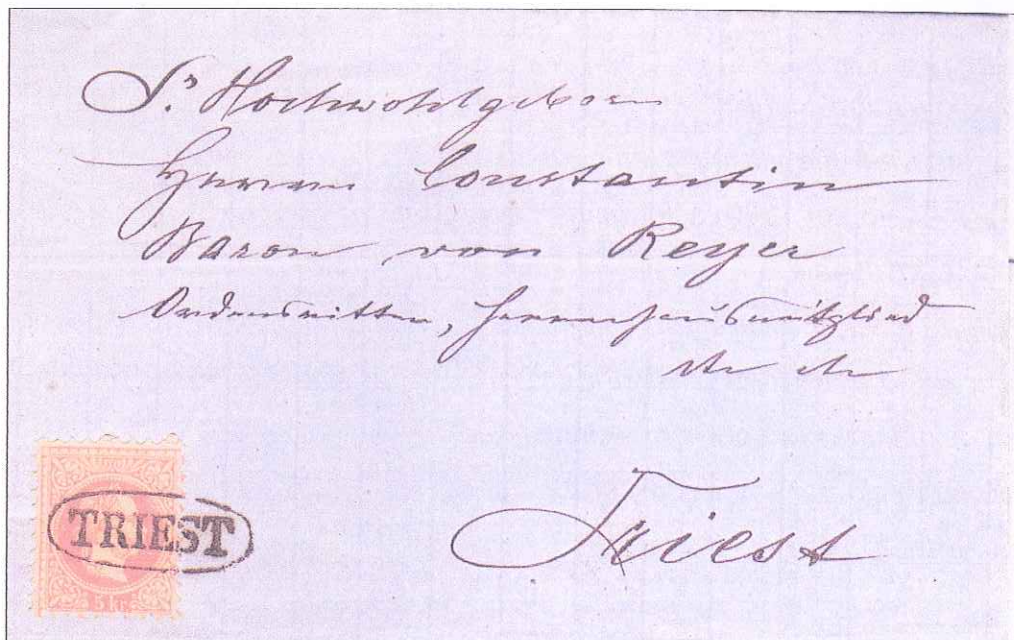 Sr Hochwohlgeboren
Herrn Constantin
Baron von Reyer
Ordensritter, Herrenhausmitglied
etc etc
TRIEST
Triest
5 KR